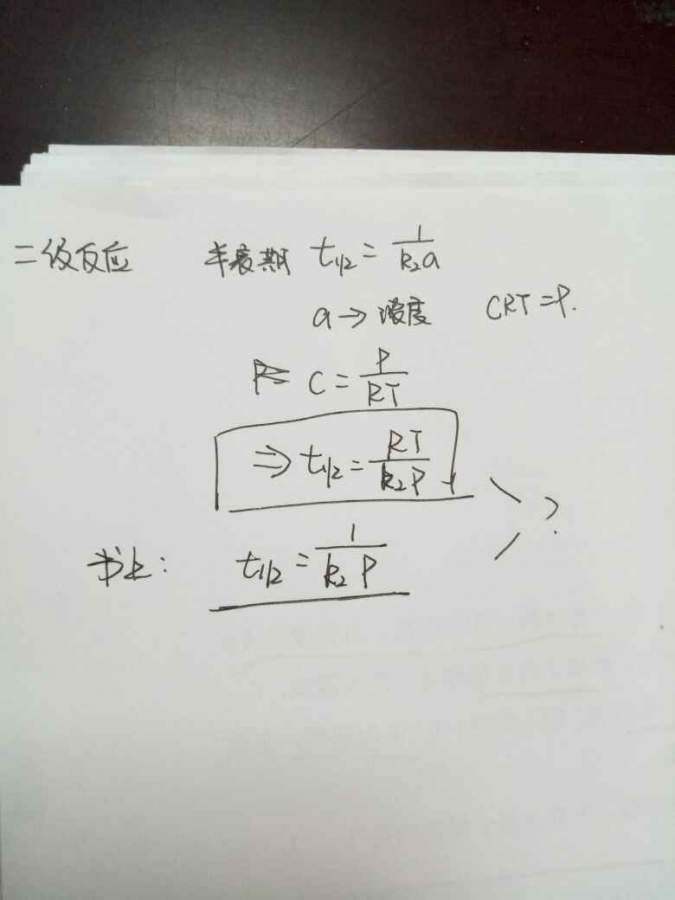 二级反应 半衰期 t₁/₂ = 1/k₂a
a → 浓度 CRT = P.
P= C = P/RT
⇒ t₁/₂ = RT/k₂P
书上: t₁/₂ = 1/k₂P
?